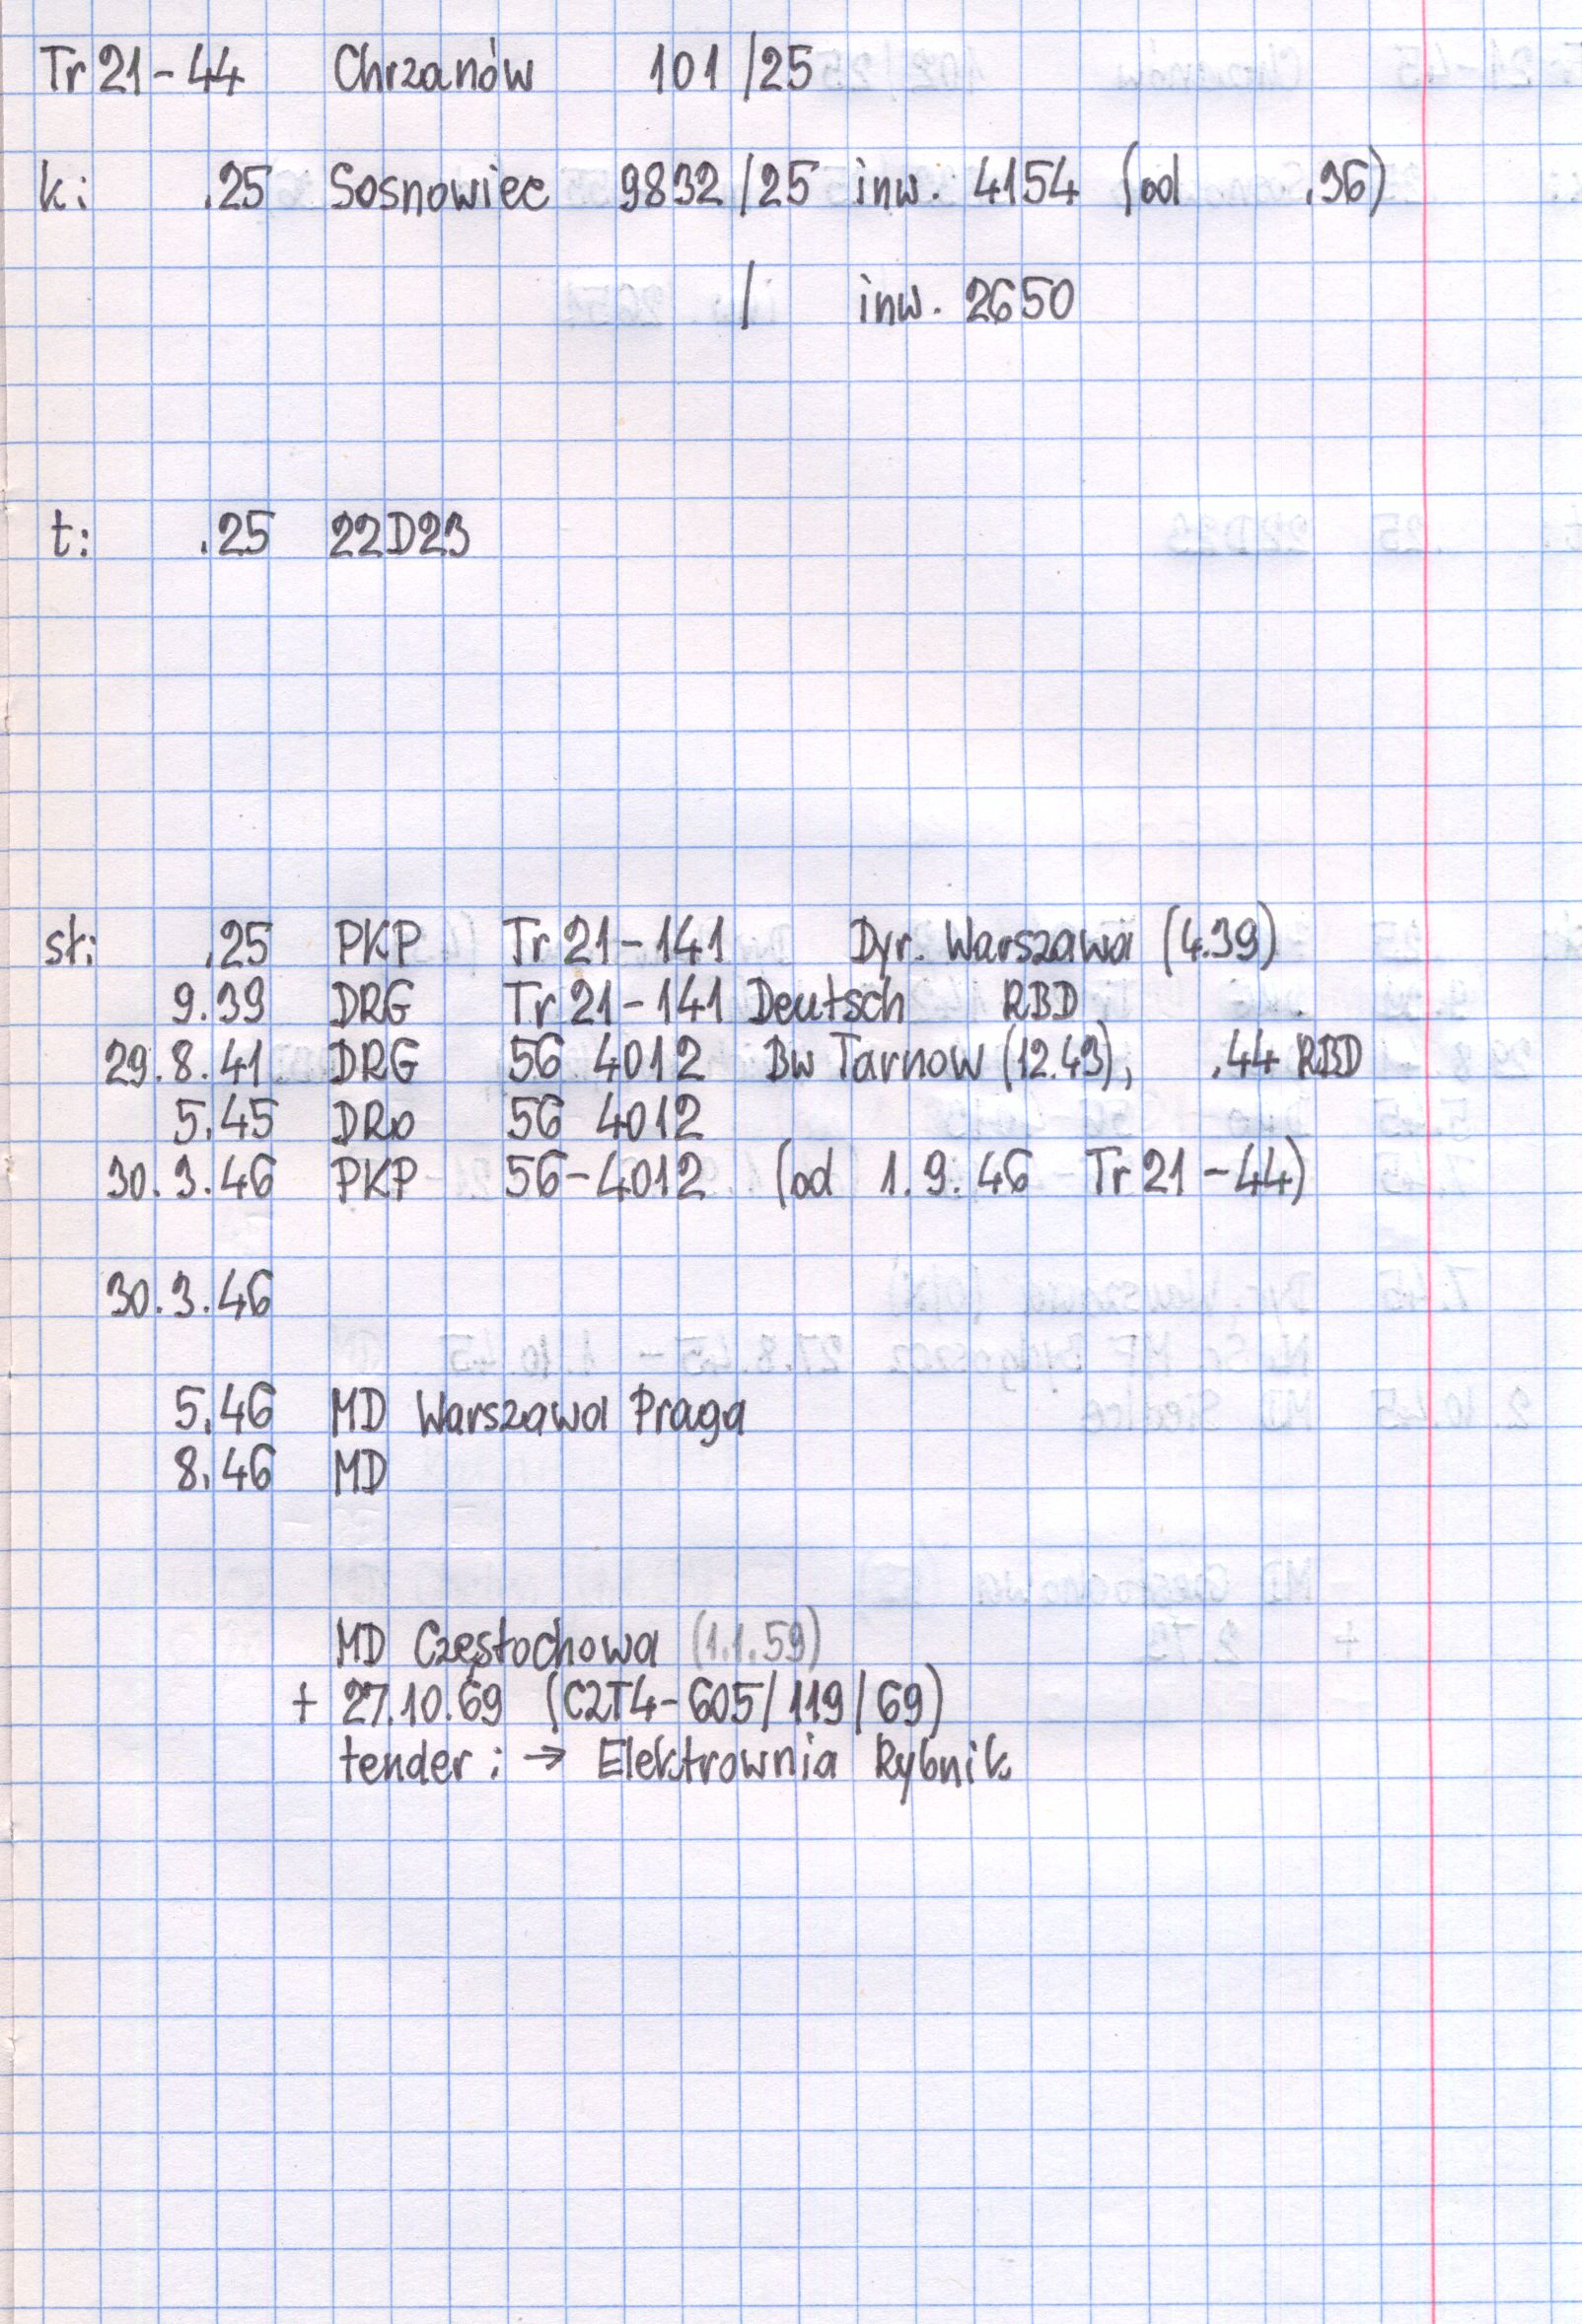 Tr 21-44 Chrzanów 101/25
k: .25 Sosnowiec 9832/25 inw. 4154 (od .36)
/ inw. 2650
t: .25 22D23
st: .25 PKP Tr 21-141 Dyr. Warszawa (4.39)
9.39 DRG Tr 21-141 Deutsch RBD
29.8.41 DRG 56 4012 Bw Tarnow (12.43), .44 RBD
5.45 DRo 56 4012
30.3.46 PKP 56-4012 (od 1.9.46 Tr 21-44)
30.3.46
5.46 MD Warszawa Praga
8.46 MD
MD Częstochowa (1.1.59)
+ 27.10.69 (C2T4-605/119/69)
tender: → Elektrownia Rybnik